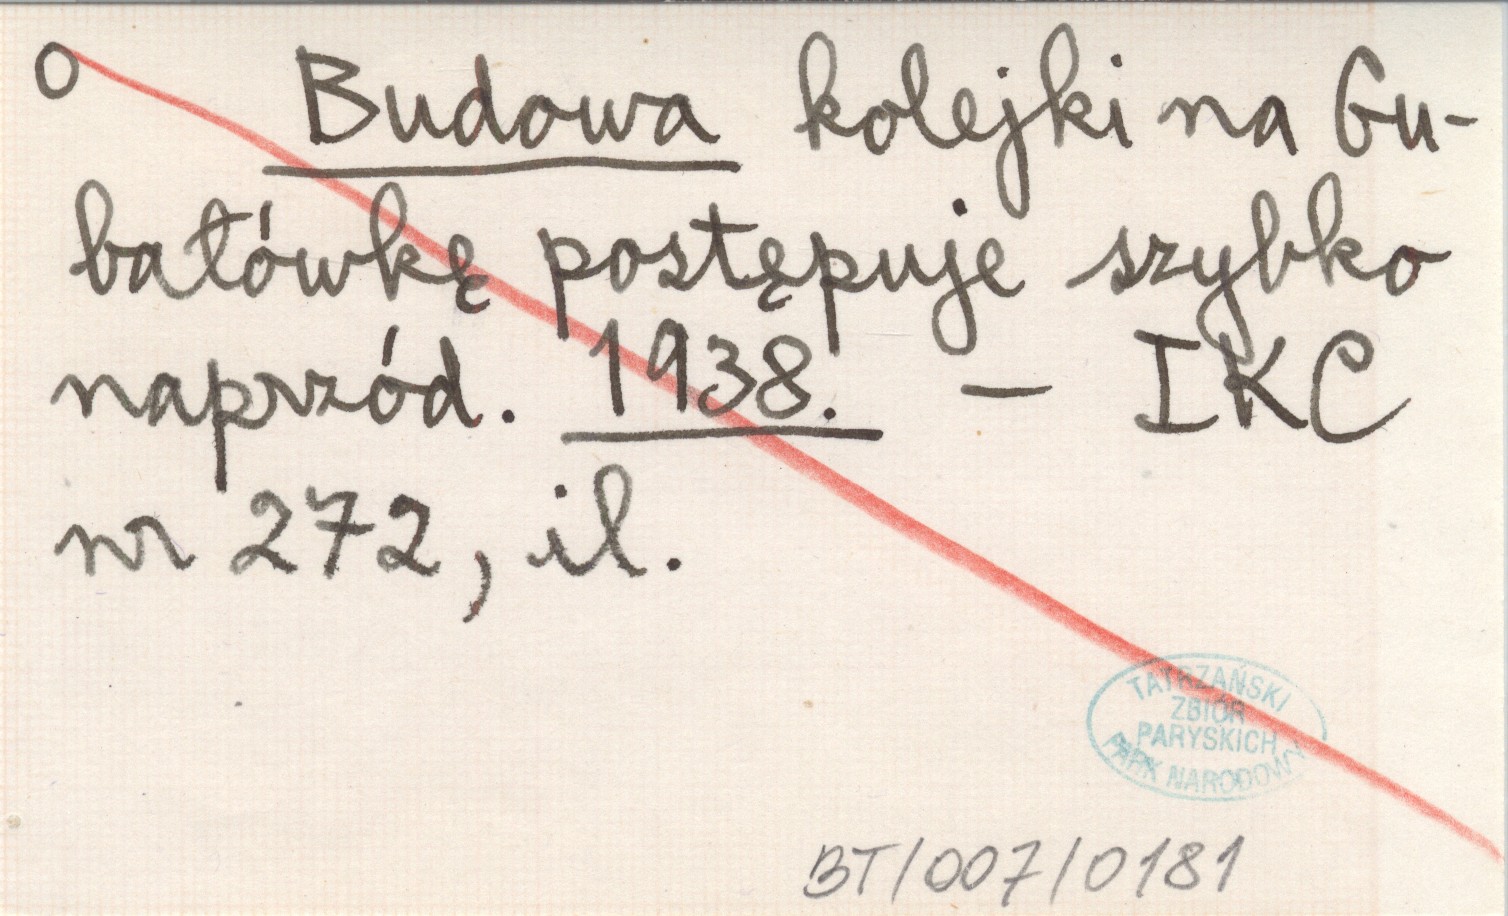 O Budowa kolejki na Gu-
bałówkę postępuje szybko
naprzód. 1938. — IKC
nr 272, il.
TATRZAŃSKI
ZBIÓR
PARYSKICH
PARK NARODOWY
BT/007/0181